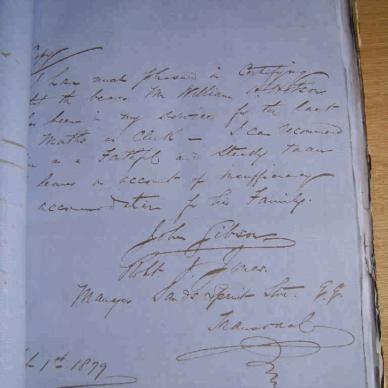 Copy
I have much pleasure in Certifying
that the bearer Mr William
has been in my service for the last
Months as Clerk — I can recommend
him as a Faithful and Steady Man
leaves on account of insufficiency
accommodation for his Family.
John Gibson
Robt J. Jones.
Manager Lands Store. G.G.
Transvaal
1st 1879